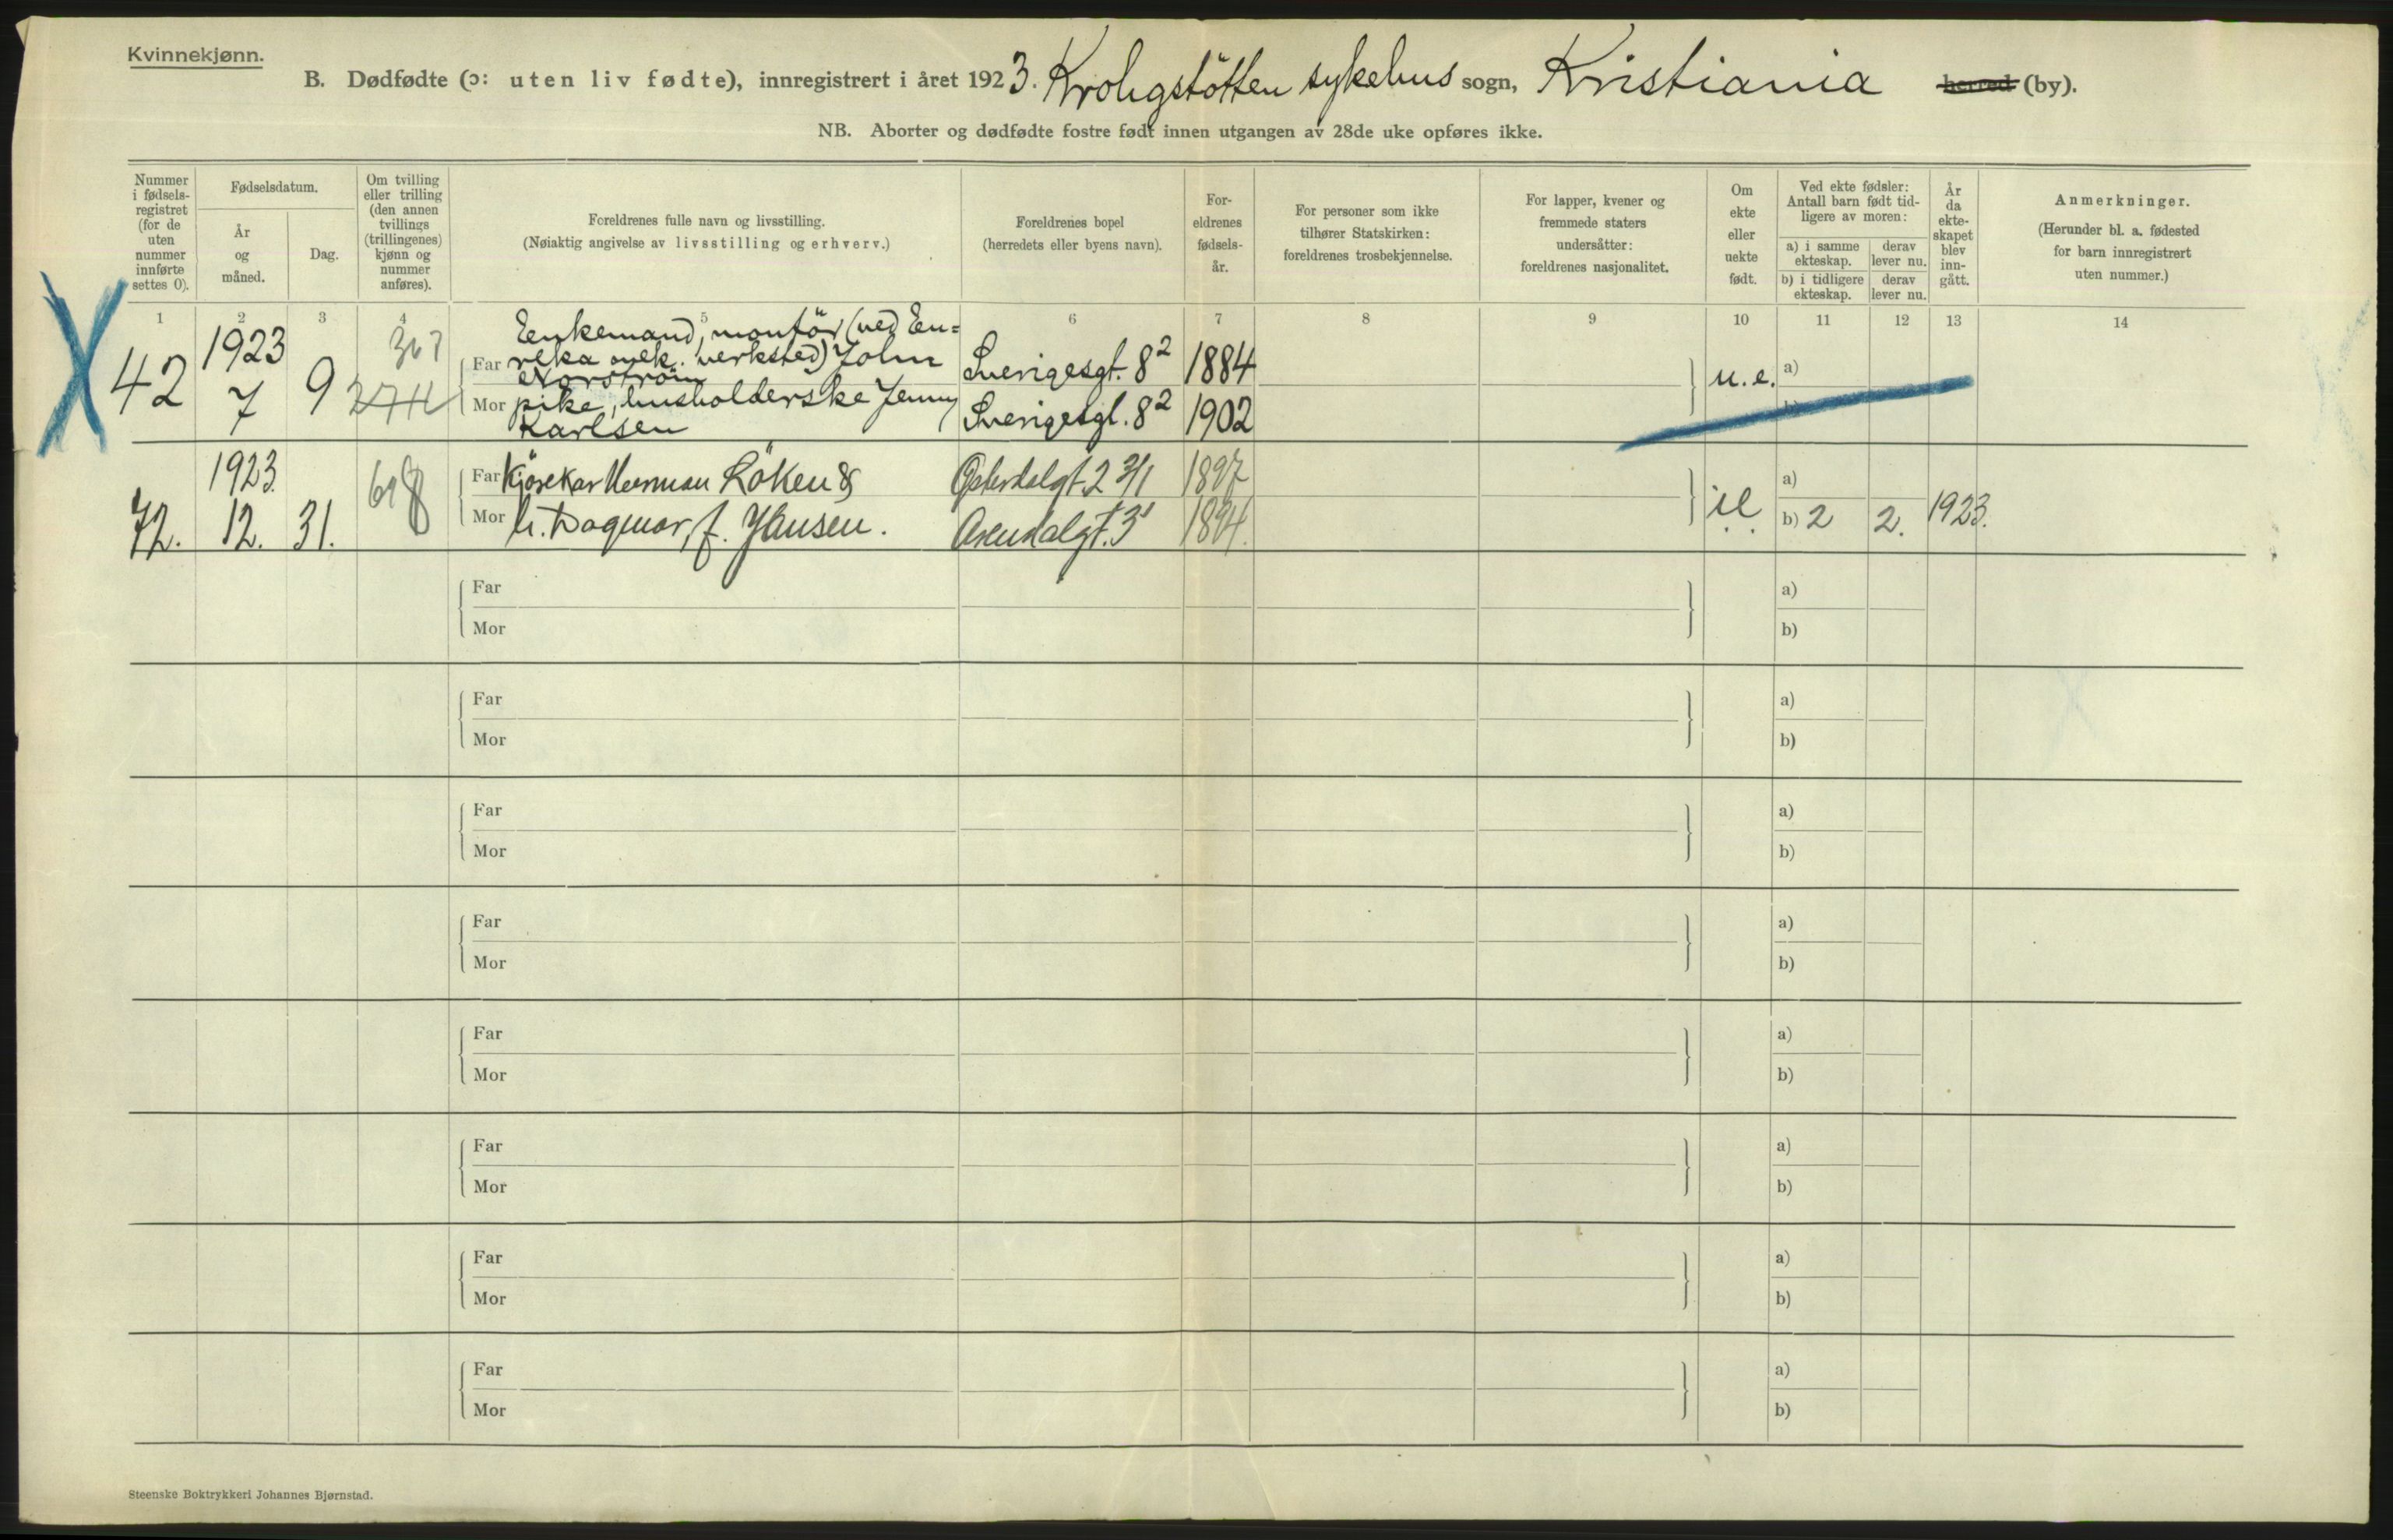 Kvinnekjønn.
B. Dødfødte (ɔ: uten liv fødte), innregistrert i året 1923. Krohgstötten sykehus sogn, Kristiania herred (by).
NB. Aborter og dødfødte fostre født innen utgangen av 28de uke opføres ikke.
Nummer i fødsels-registret (for de uten nummer innførte settes 0).
Fødselsdatum.
År og måned.
Dag.
Om tvilling eller trilling (den annen tvillings (trillingenes) kjønn og nummer anføres).
Foreldrenes fulle navn og livsstilling.
(Nøiaktig angivelse av livsstilling og erhverv.)
Foreldrenes bopel
(herredets eller byens navn).
For-eldrenes fødsels-år.
For personer som ikke tilhører Statskirken: foreldrenes trosbekjennelse.
For lapper, kvener og fremmede staters undersåtter: foreldrenes nasjonalitet.
Om ekte eller uekte født.
Ved ekte fødsler: Antall barn født tid-ligere av moren:
a) i samme ekteskap.
derav lever nu.
b) i tidligere ekteskap.
derav lever nu.
År da ekte-skapet blev inn-gått.
Anmerkninger.
(Herunder bl. a. fødested for barn innregistrert uten nummer.)
1 2 3 4 5 6 7 8 9 10 11 12 13 14
42 1923 7 9 367
Far Enkemand, montör (ved Eu=
reka mek. verksted) John
Norström Sverigesgt. 8² 1884
Mor pike, husholderske Jenny
Karlsen Sverigesgt. 8² 1902
u.e. a)
b)
72. 1923. 12. 31. 618
Far Kjörekar Herman Löken & Österdalgt. 2 3/1 1897
Mor h. Dagmar, f. Jhansen. Arendalgt. 3' 1894.
a)
b) 2 2. 1923.
Far a)
Mor b)
Far a)
Mor b)
Far a)
Mor b)
Far a)
Mor b)
Far a)
Mor b)
Far a)
Mor b)
Far a)
Mor b)
Far a)
Mor b)
Steenske Boktrykkeri Johannes Bjørnstad.